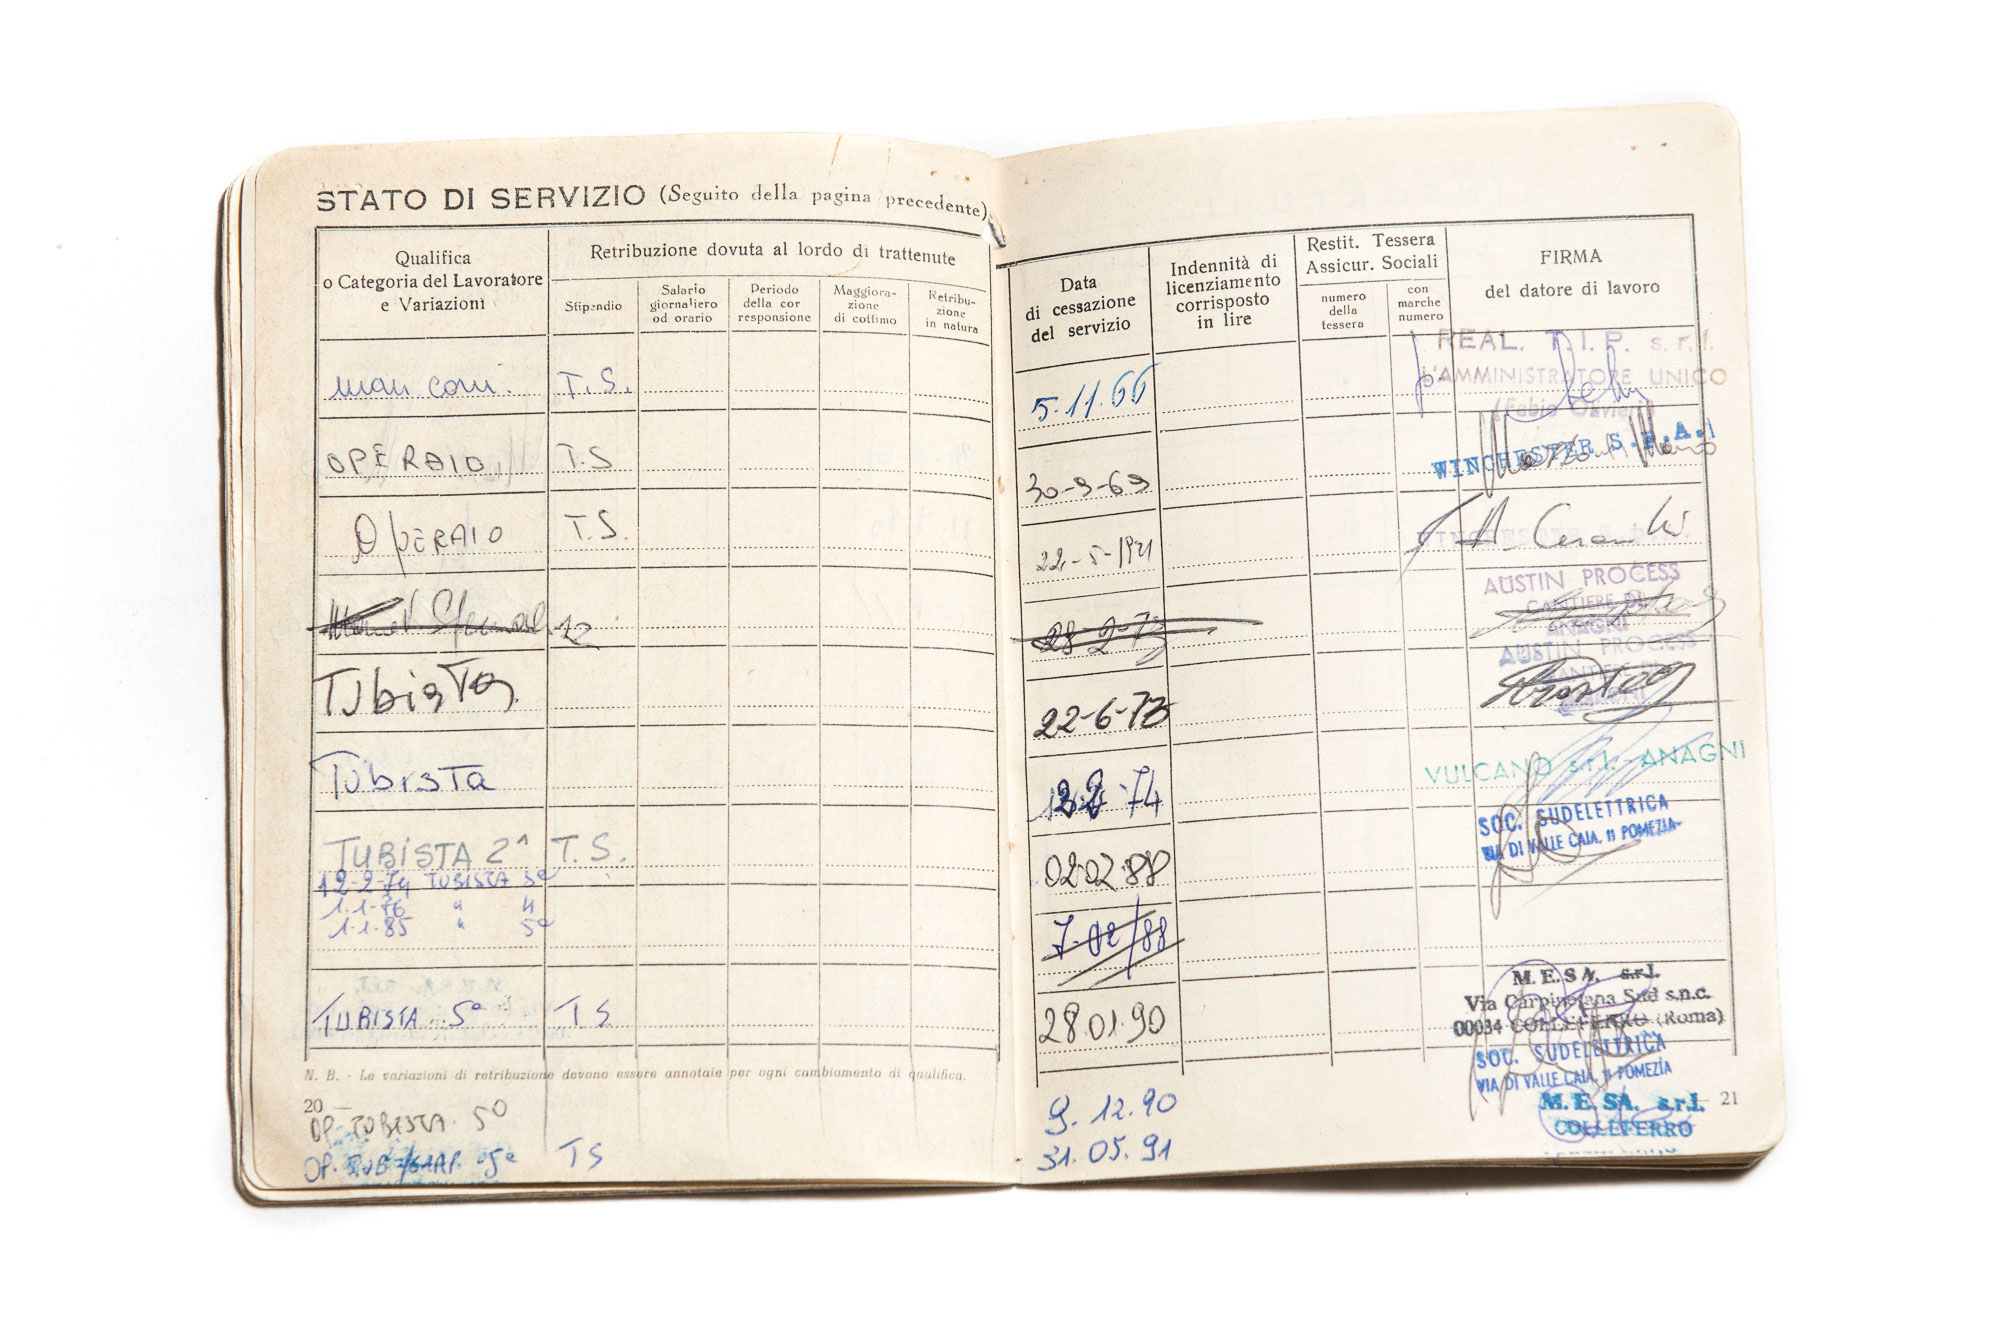 STATO DI SERVIZIO (Seguito della pagina precedente)
Qualifica
o Categoria del Lavoratore
e Variazioni
Retribuzione dovuta al lordo di trattenute
Stipendio
Salario
giornaliero
od orario
Periodo
della cor
responsione
Maggiora-
zione
di cottimo
Retribu-
zione
in natura
man com. T.S.
OPERAIO T.S
OPERAIO T.S.
TubisTa
TubisTa
TUBISTA 2^ T.S.
12-2-74 TUBISTA 3ª
1.1-76 " 4
1.1.85 " 5ª
TUBISTA 5ª TS
N. B. - Le variazioni di retribuzione devono essere annotate per ogni cambiamento di qualifica.
20
OP. TUBISTA. 5º
OP. TUB 5ª TS
Data
di cessazione
del servizio
Indennità di
licenziamento
corrisposto
in lire
Restit. Tessera
Assicur. Sociali
numero
della
tessera
con
marche
numero
FIRMA
del datore di lavoro
5.11.66
REAL. T.I.P. s.r.l.
L'AMMINISTRATORE UNICO
(Fabio Olivieri)
30-9-69
WINCHESTER S.P.A.
22-5-1971
28-2-73
AUSTIN PROCESS
CANTIERE DI
ANAGNI
22-6-73
AUSTIN PROCESS
74
VULCANO srl. ANAGNI
02.02.88
SOC. SUDELETTRICA
VIA DI VALLE CAIA, 11 POMEZIA
7-02/88
28.01.90
M.E.SA. s.r.l.
Via Carpinetana Sud s.n.c.
00034 COLLEFERRO (Roma)
SOC. SUDELETTRICA
VIA DI VALLE CAIA, 11 POMEZIA
9.12.90
M.E.SA. s.r.l.
COLLEFERRO
31.05.91
21